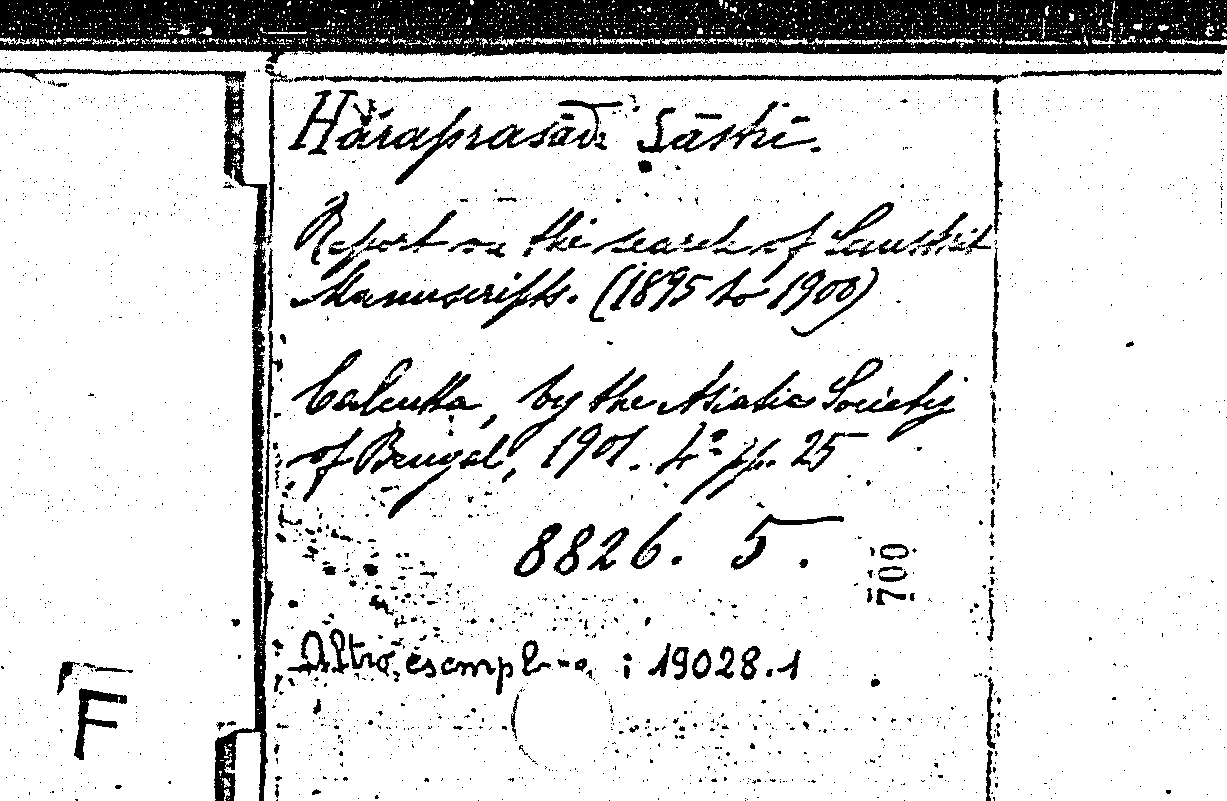 Haraprasād Śāstrī.
Report on the search of Sanskrit
Manuscripts. (1895 to 1900)
Calcutta, by the Asiatic Society
of Bengal, 1901. 4° pp. 25
8826. 5.
700
Altro esempl---o : 19028.1
F